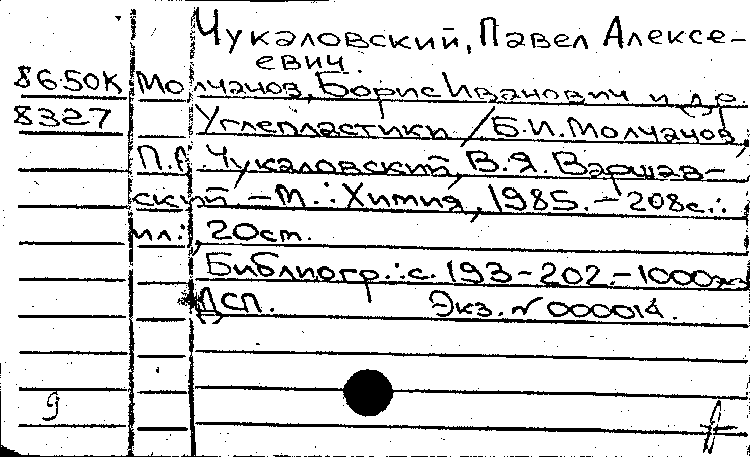 Чукаловский, Павел Алексе-
евич.
8650К Молчанов, Борис Иванович и др.
8327 Углепластики / Б.И. Молчанов,
П.А. Чукаловский, В.Я. Варшав-
ский – М.: Химия, 1985. – 208с.:
ил.:, 20см.
Библиогр.: с. 193-202. – 1000экз
ДСП. Экз. № 000014.
9